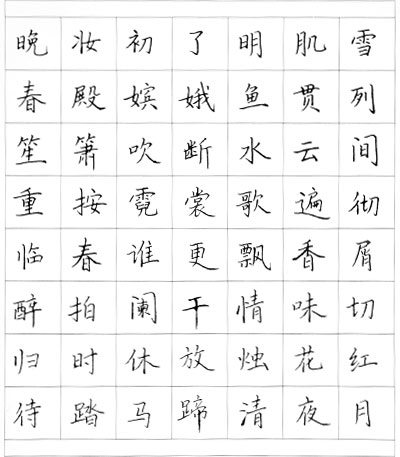 晚妆初了明肌雪
春殿嫔娥鱼贯列
笙箫吹断水云间
重按霓裳歌遍彻
临春谁更飘香屑
醉拍阑干情味切
归时休放烛花红
待踏马蹄清夜月